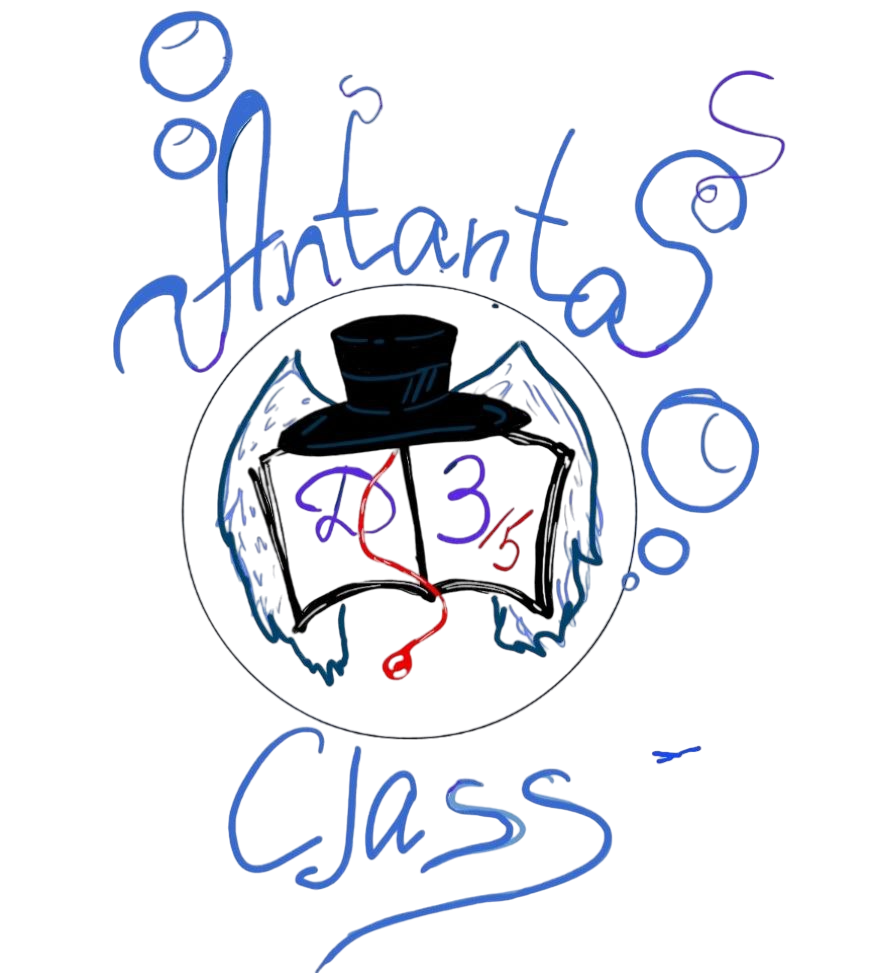 AntantaS
D 3/5
Class